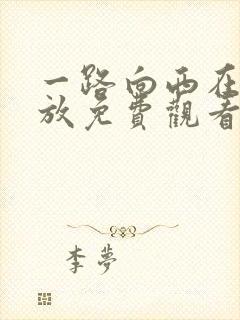 一路向西在
放免費觀看
李夢